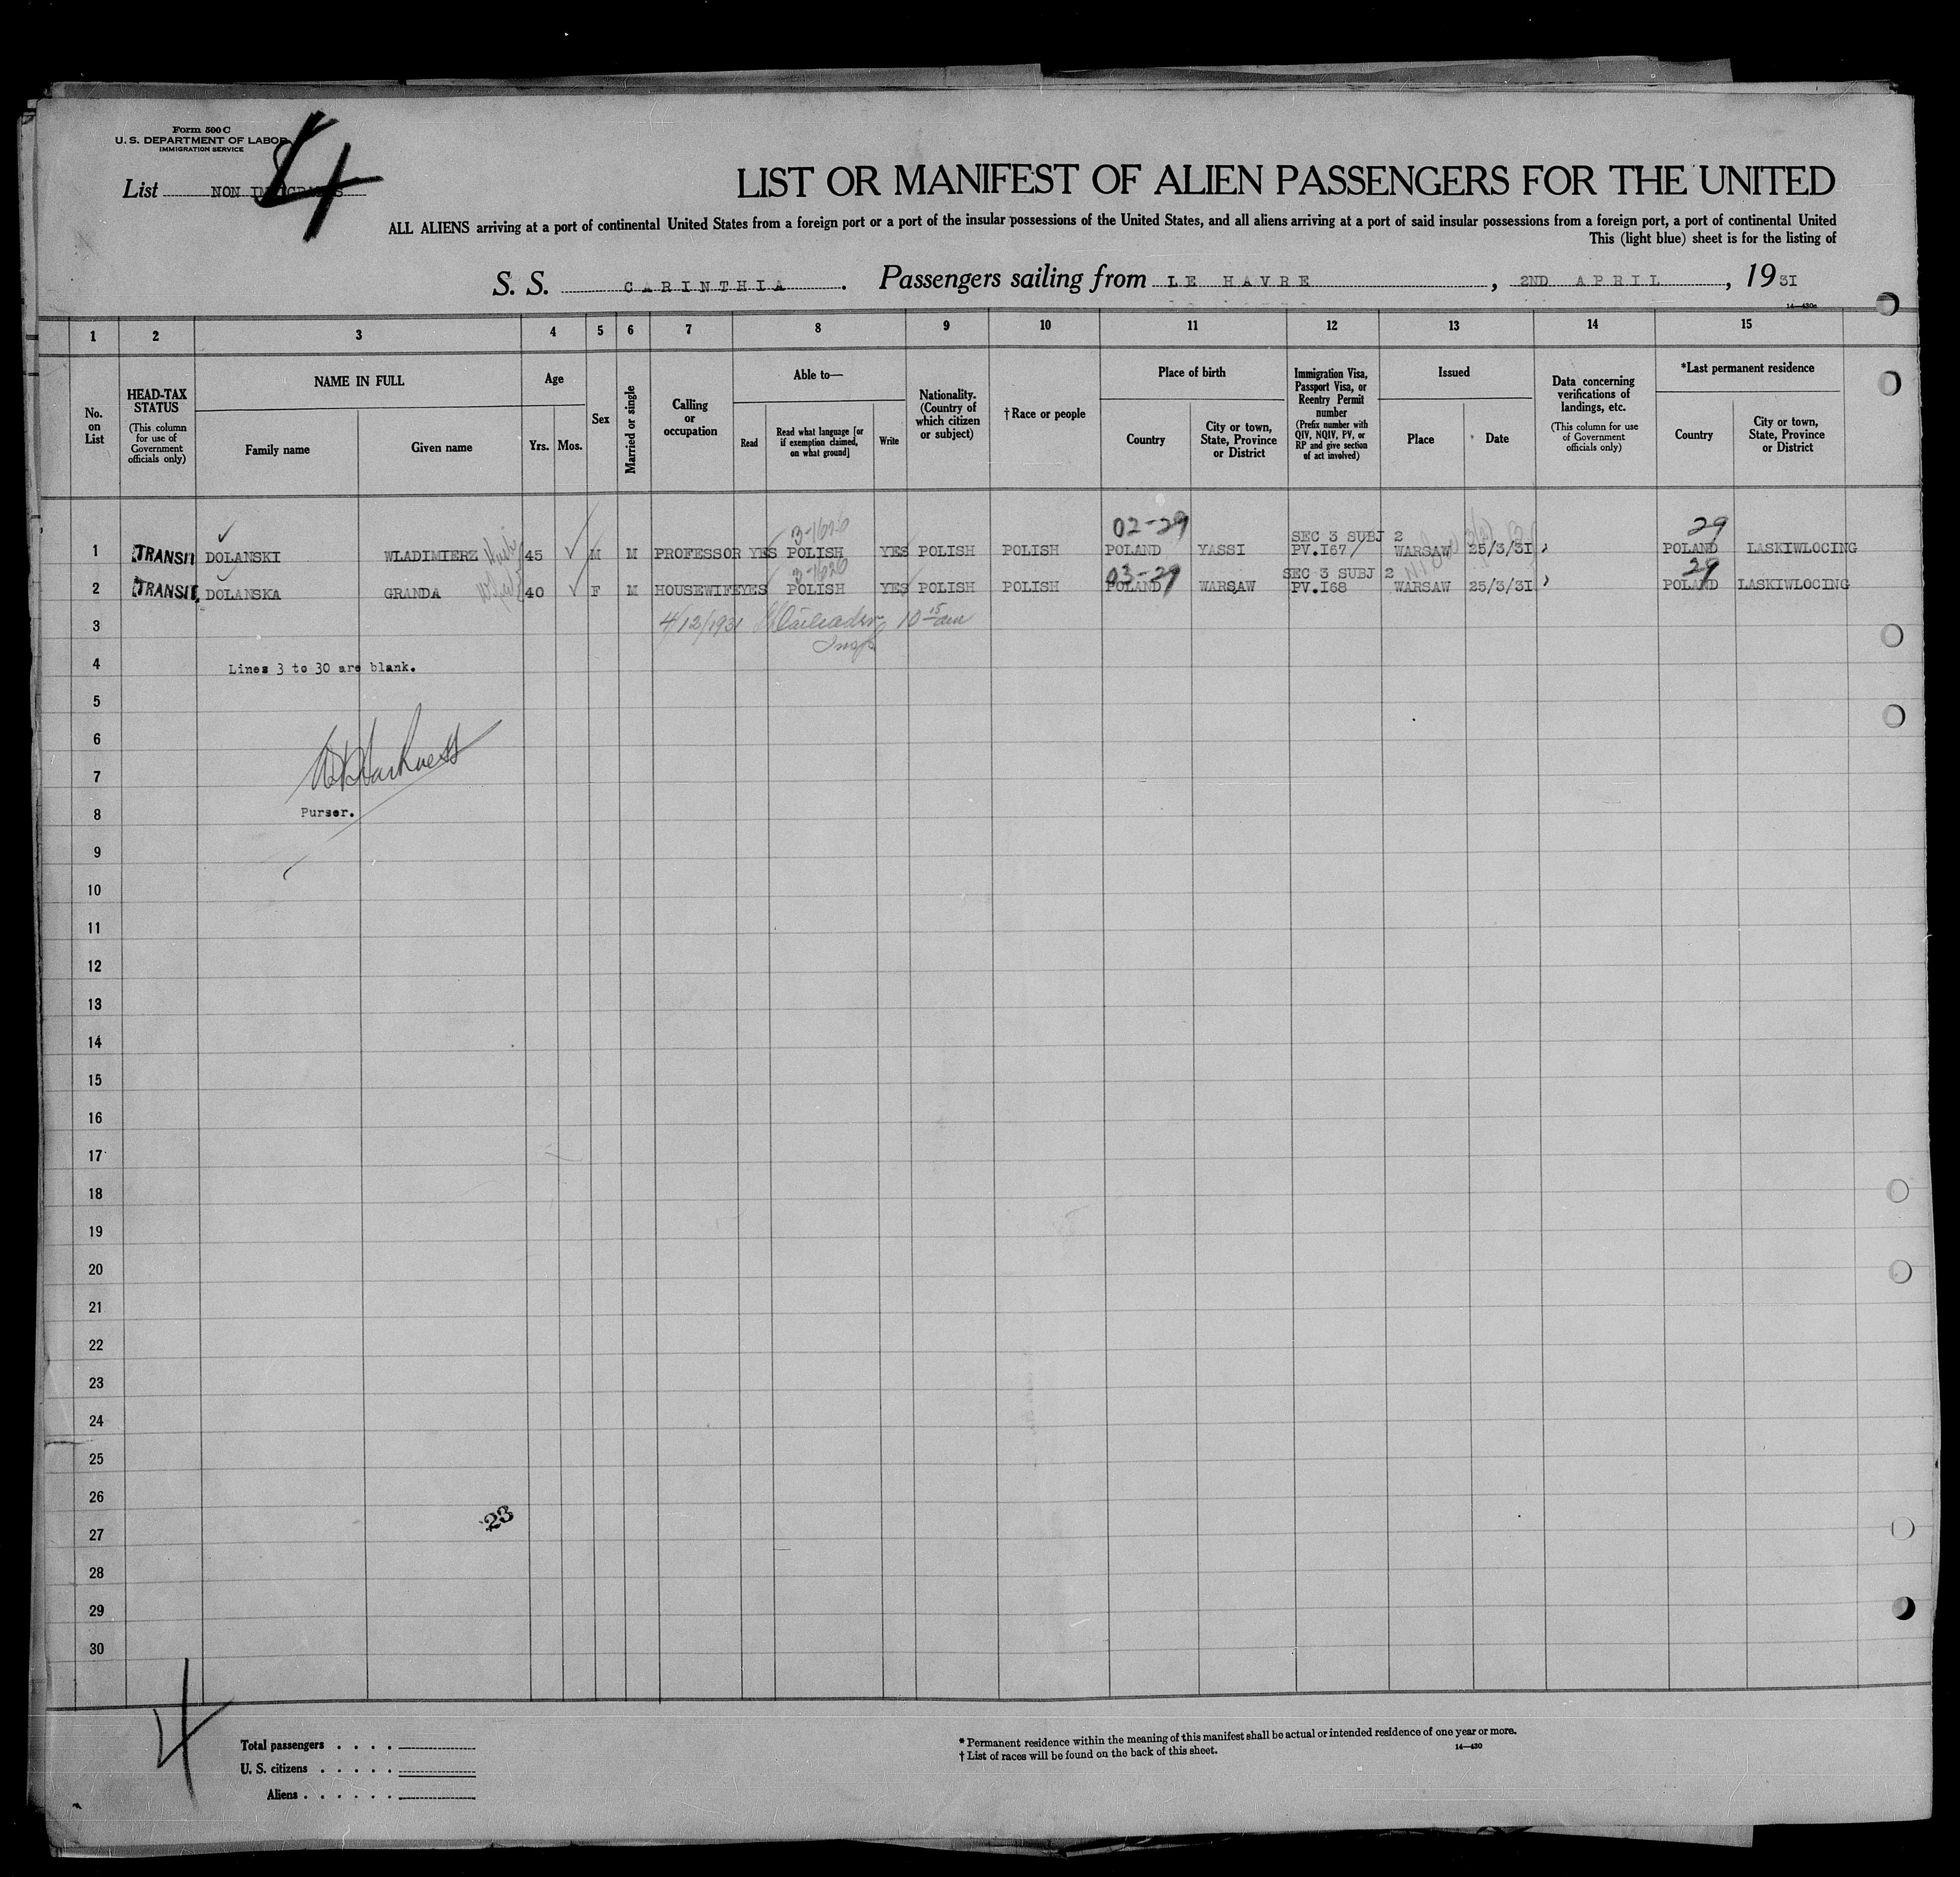 Form 500 C
U. S. DEPARTMENT OF LABOR
IMMIGRATION SERVICE
4
List NON IMMIGRANTS
LIST OR MANIFEST OF ALIEN PASSENGERS FOR THE UNITED
ALL ALIENS arriving at a port of continental United States from a foreign port or a port of the insular possessions of the United States, and all aliens arriving at a port of said insular possessions from a foreign port, a port of continental United
This (light blue) sheet is for the listing of
S. S. CARINTHIA. Passengers sailing from LE HAVRE, 2ND APRIL, 1931
14—430a
1 2 3 4 5 6 7 8 9 10 11 12 13 14 15
No. on List
HEAD-TAX STATUS
(This column for use of Government officials only)
NAME IN FULL
Family name
Given name
Age
Yrs. Mos.
Sex
Married or single
Calling or occupation
Able to—
Read
Read what language [or if exemption claimed, on what ground]
Write
Nationality. (Country of which citizen or subject)
†Race or people
Place of birth
Country
City or town, State, Province or District
Immigration Visa, Passport Visa, or Reentry Permit number
(Prefix number with QIV, NQIV, PV, or RP and give section of act involved)
Issued
Place
Date
Data concerning verifications of landings, etc.
(This column for use of Government officials only)
*Last permanent residence
Country
City or town, State, Province or District
3-1626 02-29 SEC 3 SUBJ 2 29
1 TRANSIT DOLANSKI WLADIMIERZ 45 M M PROFESSOR YES POLISH YES POLISH POLISH POLAND YASSI PV.I67 WARSAW 25/3/31 POLAND LASKIWLOCING
3-1626 03-29 SEC 3 SUBJ 2 29
2 TRANSIT DOLANSKA GRANDA 40 F M HOUSEWIFE YES POLISH YES POLISH POLISH POLAND WARSAW PV.I68 WARSAW 25/3/31 POLAND LASKIWLOCING
3 4/12/1931 10 15 am
Insp
4 Lines 3 to 30 are blank.
5
6
7 Harkness
8 Purser.
9
10
11
12
13
14
15
16
17
18
19
20
21
22
23
24
25
26
23
27
28
29
30
4
Total passengers . . . .
U. S. citizens . . . . .
Aliens . . . . . .
* Permanent residence within the meaning of this manifest shall be actual or intended residence of one year or more.
† List of races will be found on the back of this sheet.
14—430